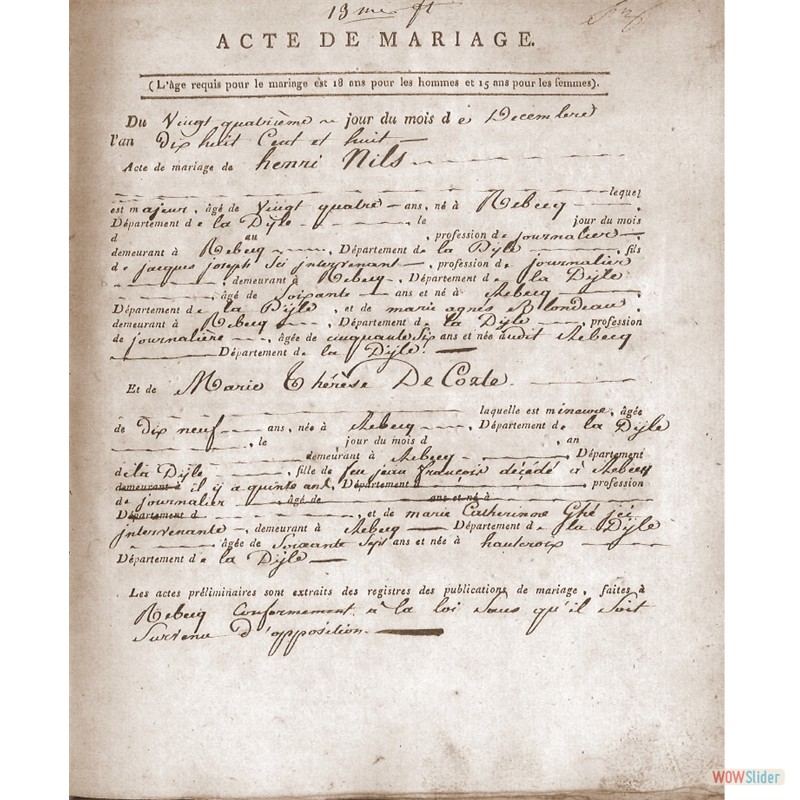 13 me ft
ACTE DE MARIAGE.
(L'âge requis pour le mariage est 18 ans pour les hommes et 15 ans pour les femmes).
Du Vingt quatrième jour du mois d e Decembre
l'an Dix huit Cent et huit
Acte de mariage de henri Nils
lequel
est majeur, âgé de Vingt quatre ans, né à Rebecq
Département de la Dijle le jour du mois
d au , profession de journalier
demeurant à Rebecq , Département de la Dijle , fils
de jacques joseph ici intervenant , profession de journalier
, demeurant à Rebecq , Département de la Dijle
, âgé de Soixante ans et né à Rebecq
Département de la Dijle , et de marie agnés Blondeau
demeurant à Rebecq , Département de la Dijle profession
de journalière , âgée de cinquante Six ans et née audit Rebecq
Département de la Dijle.
Et de Marie Thérèse De Coxte.
laquelle est mineure, âgée
de Dix neuf ans, née à Rebecq , Département de la Dijle
, le jour du mois d , an
demeurant à Rebecq Département
de la Dijle , fille de feu jean françois décédé à Rebecq
demeurant à il y a quinte ans, Département d profession
de journalier âgé de ans et né à
Département d , et de marie Catherinne Ghé ici
intervenante , demeurant à Rebecq Département de la Dijle
âgée de Soixante Sept ans et née à hautcroix
Département de la Dijle
Les actes préliminaires sont extraits des registres des publications de mariage, faites à
Rebecq Conformement à la loi Sans qu'il Soit
Survenu d'opposition.
WOWSlider